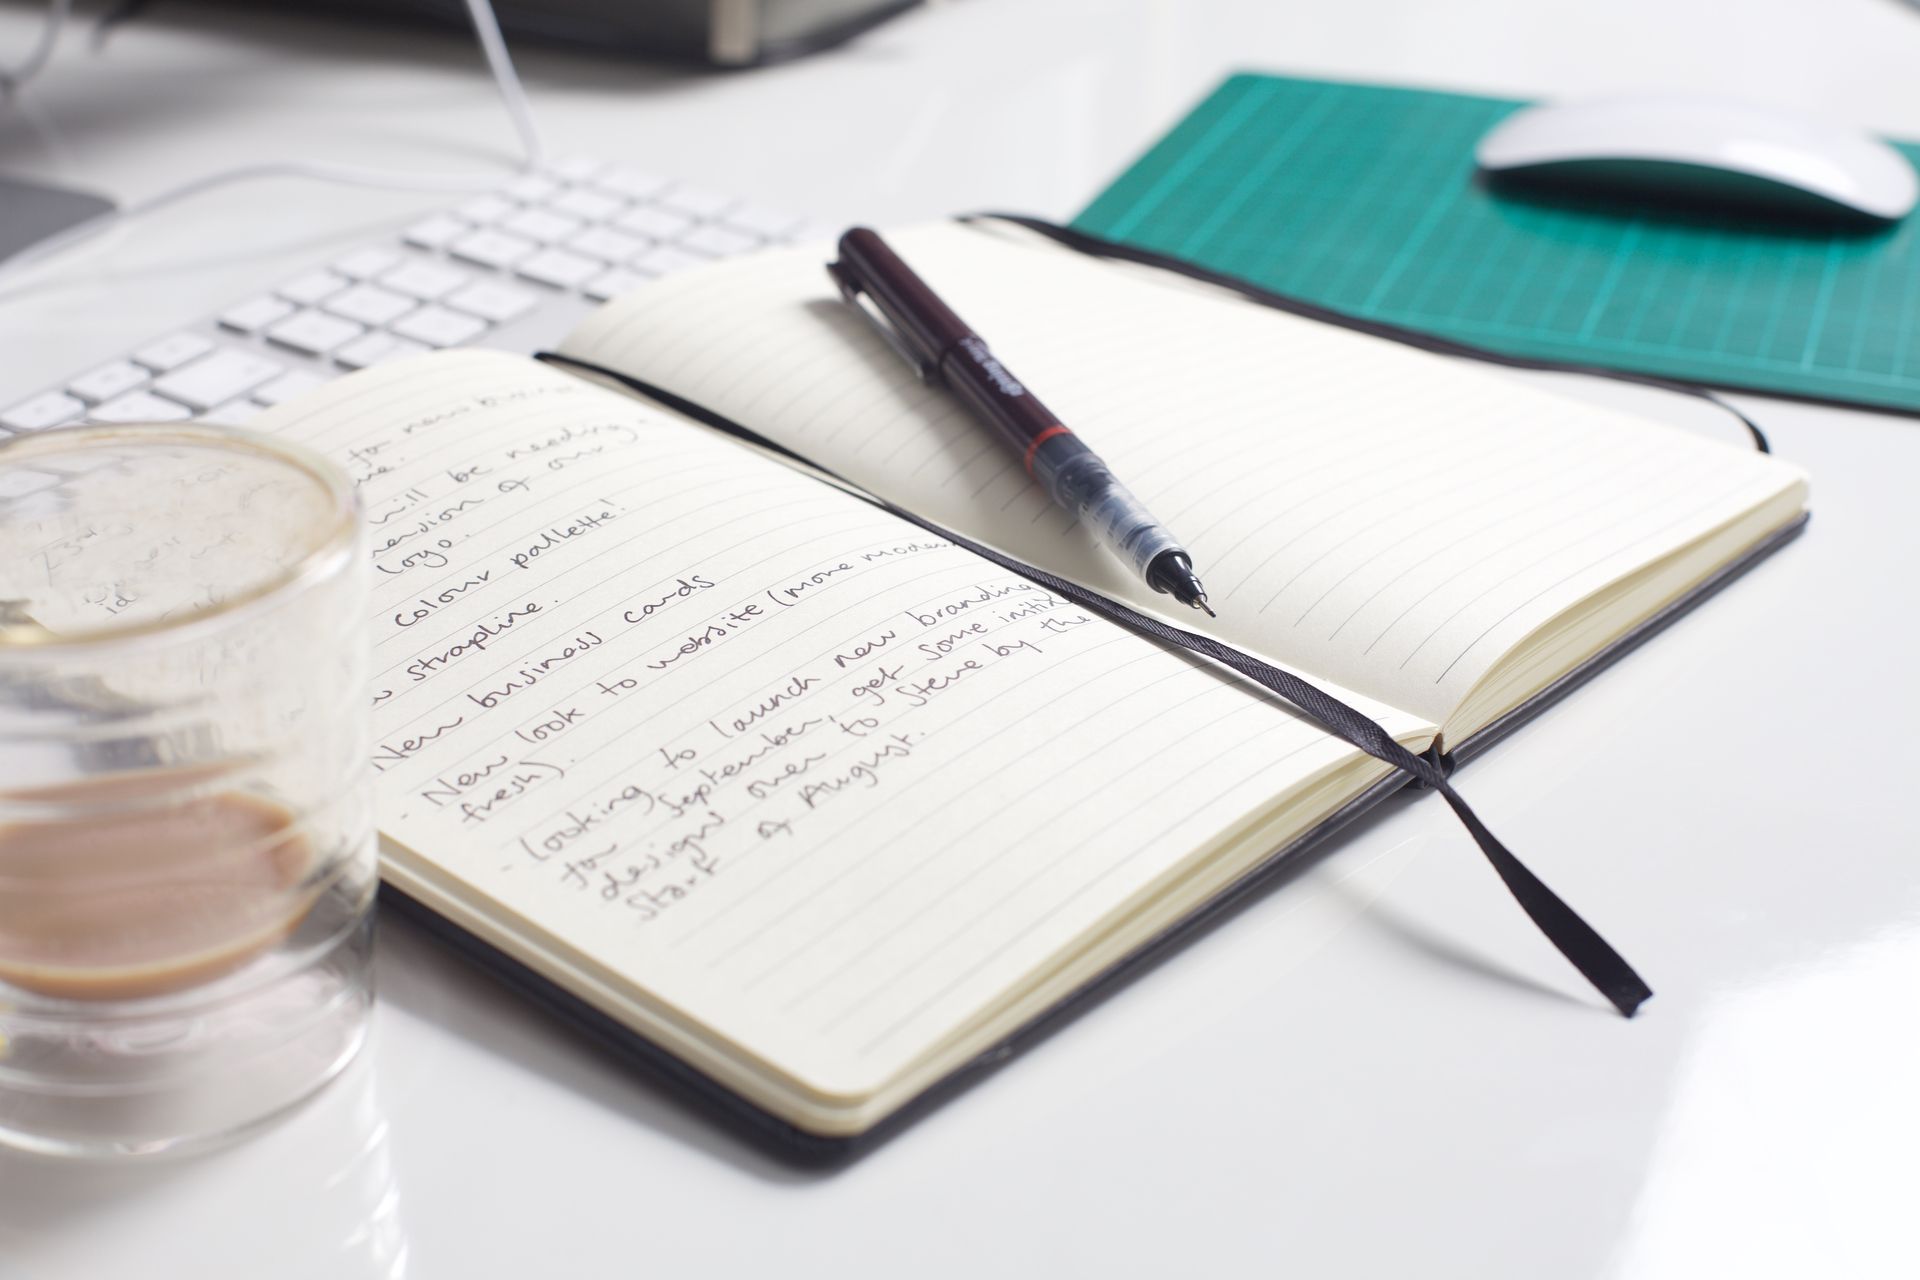 for new business
will be needing a
of our
logo.
colour pallette!
strapline.
New business cards
- New look to website (more modern
fresh).
- Looking to launch new branding
for September, get some initial
designs over to Steve by the
start of August.